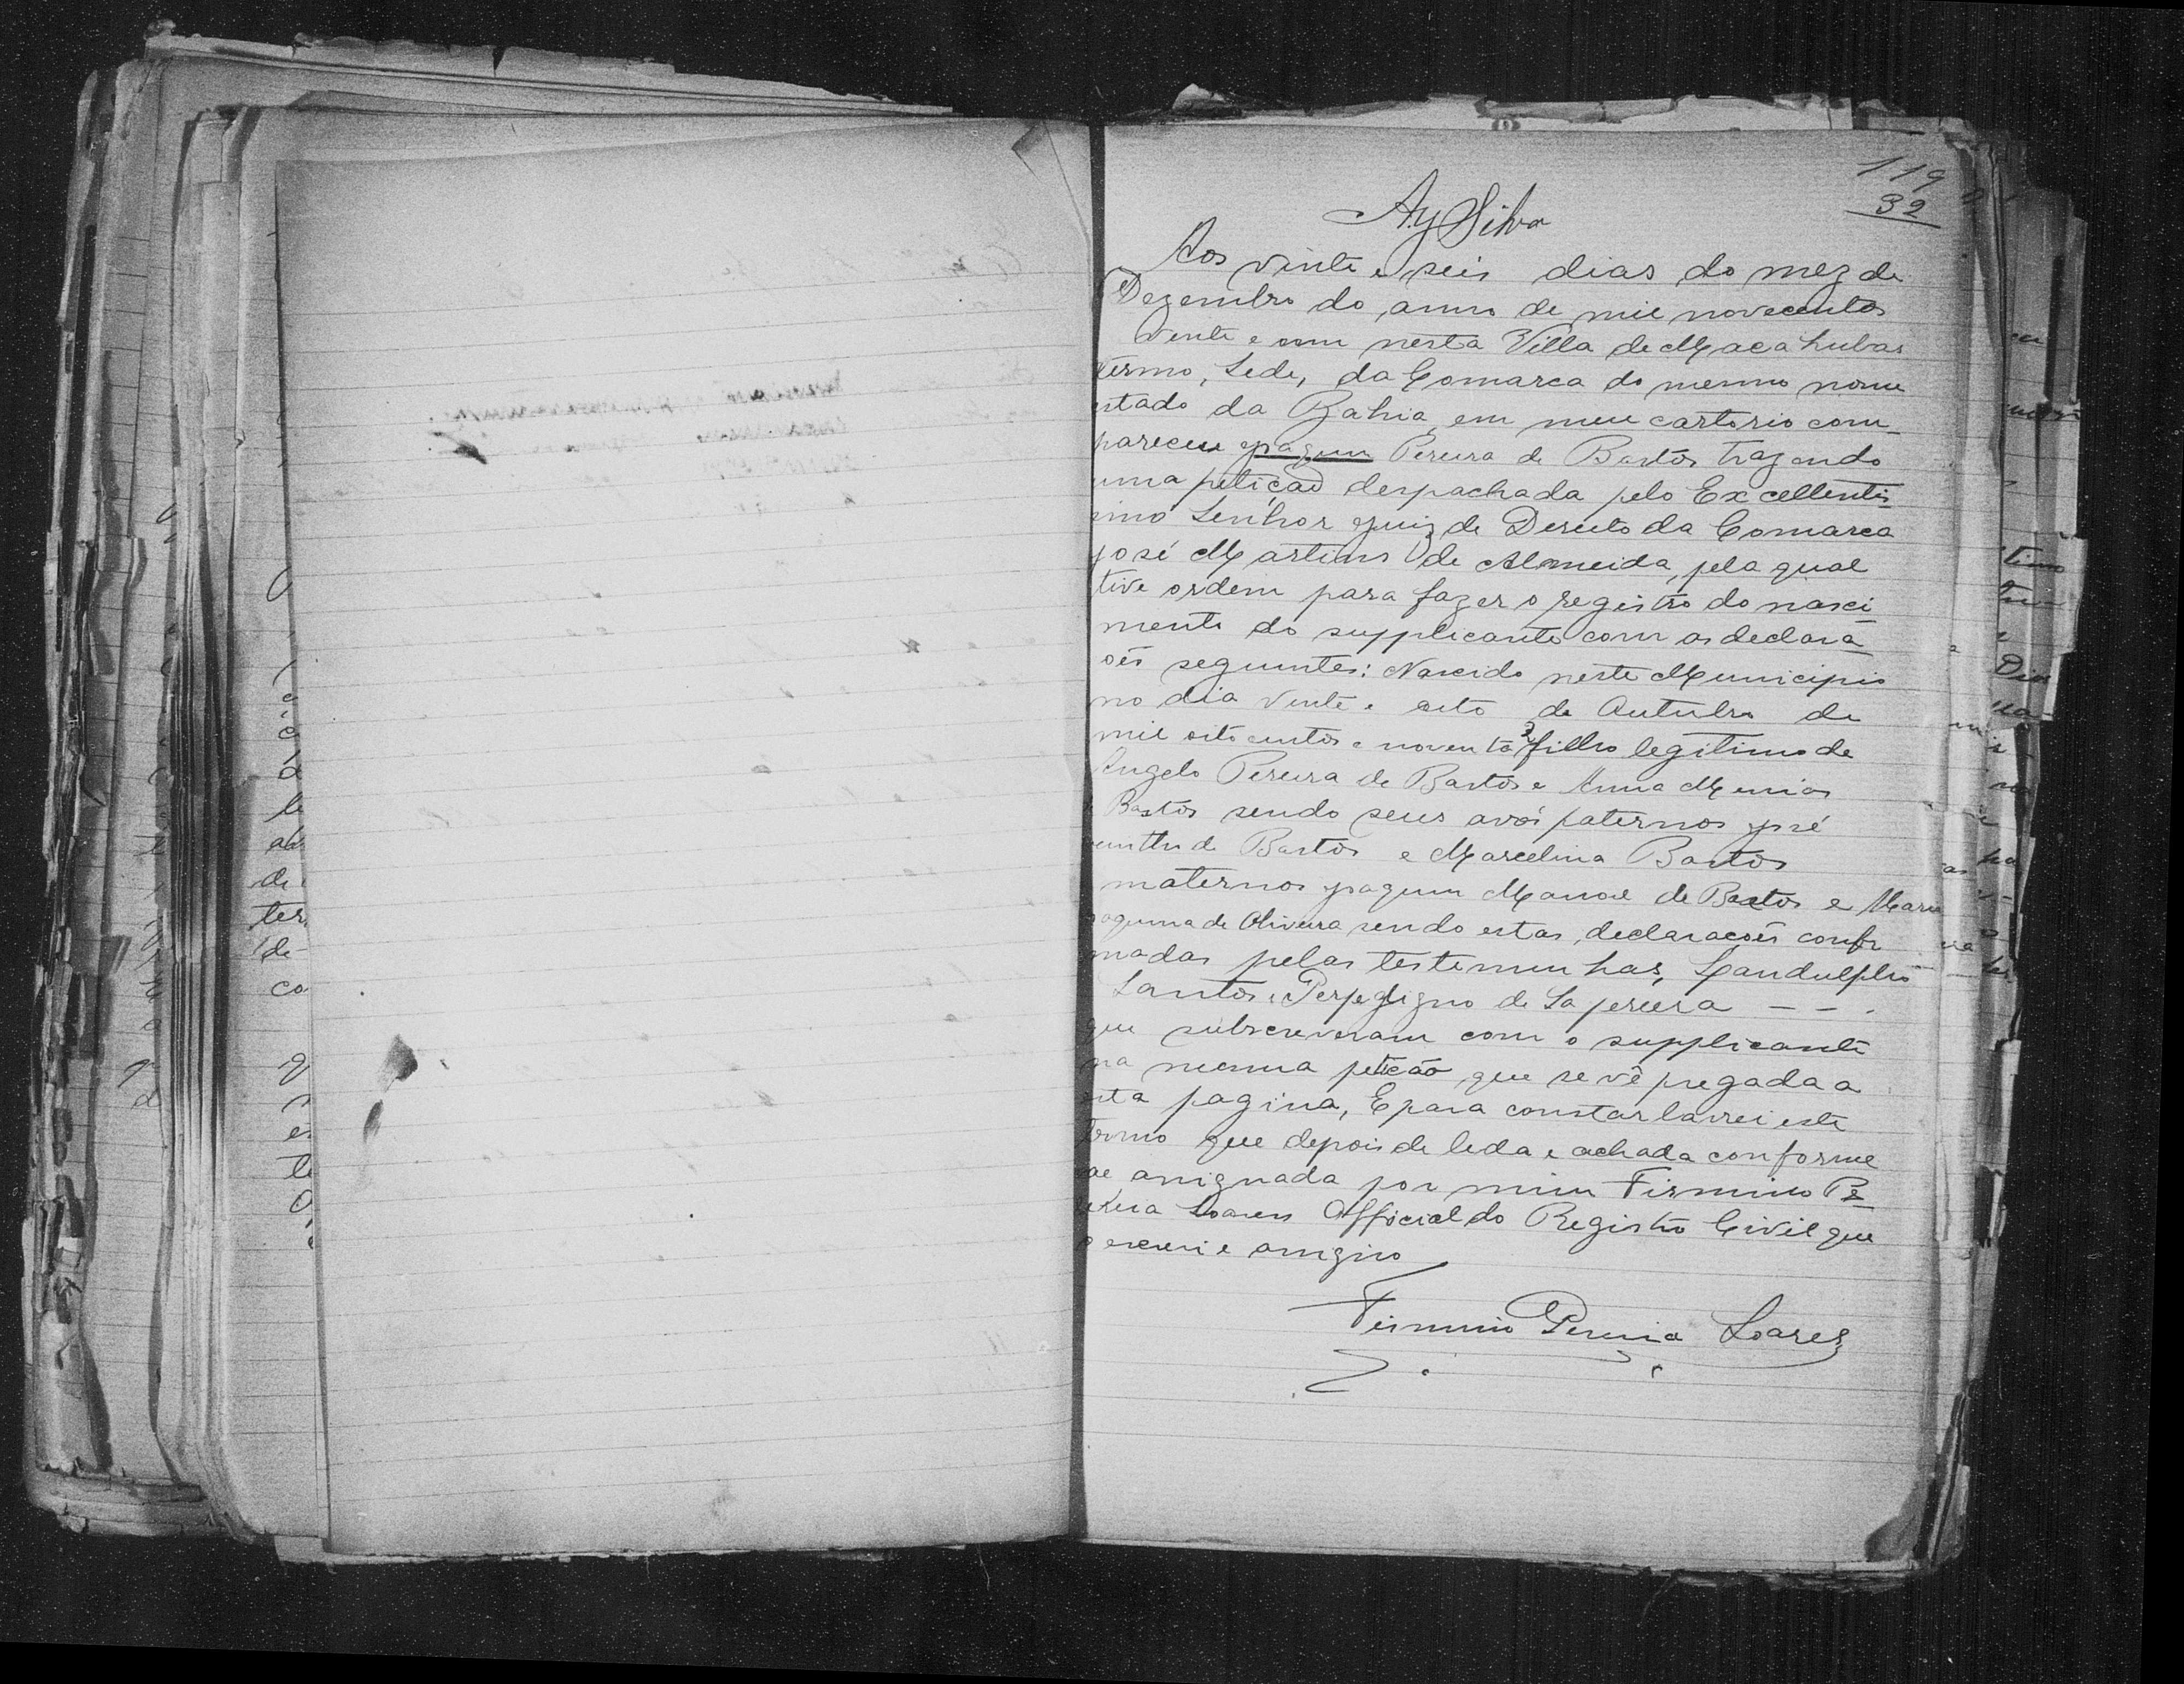 119
32
Ay Silva
Aos vinte e seis dias do mez de
Dezembro do anno de mil novecentos
vinte e um nesta Villa de Macahubas
termo, Sede, da Comarca do mesmo nome
estado da Bahia, em meu cartorio com-
pareceu Joaquim Pereira de Bastos trazendo
uma petição despachada pelo Excellentis
simo Senhor Juiz de Direito da Comarca
José Martins de Almeida, pela qual
tive ordem para fazer o registro do nasci
mento do supplicante com as declara
ões seguintes: Nascido neste Municipio
no dia vinte e oito de Outubro de
mil oitocentos e noventa 2 filho legitimo de
Angelo Pereira de Bastos e Anna
Bastos sendo seus avós paternos José
de Bastos e Marcelina Bastos
maternos Joaquim Manoel de Bastos e Maria
de Oliveira sendo estas declaracões confir
madas pelas testemunhas, Landulpho
Santos e de Sa pereira - - .
que subscreveram com o supplicante
na mesma peticão que se vê pregada a
esta pagina, E para constar lavrei este
termo que depois de leda e achada conforme
vae assignada por mim Firmino Pe
reira Soares Official do Registro Civil que
o escrevi e assigno
Firmino Pereira Soares